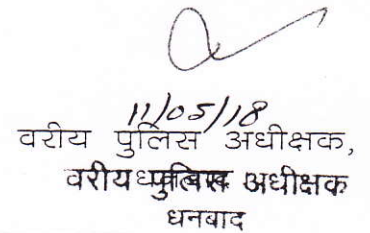 11/05/18
वरीय पुलिस अधीक्षक,
वरीय पुलिस अधीक्षक
धनबाद